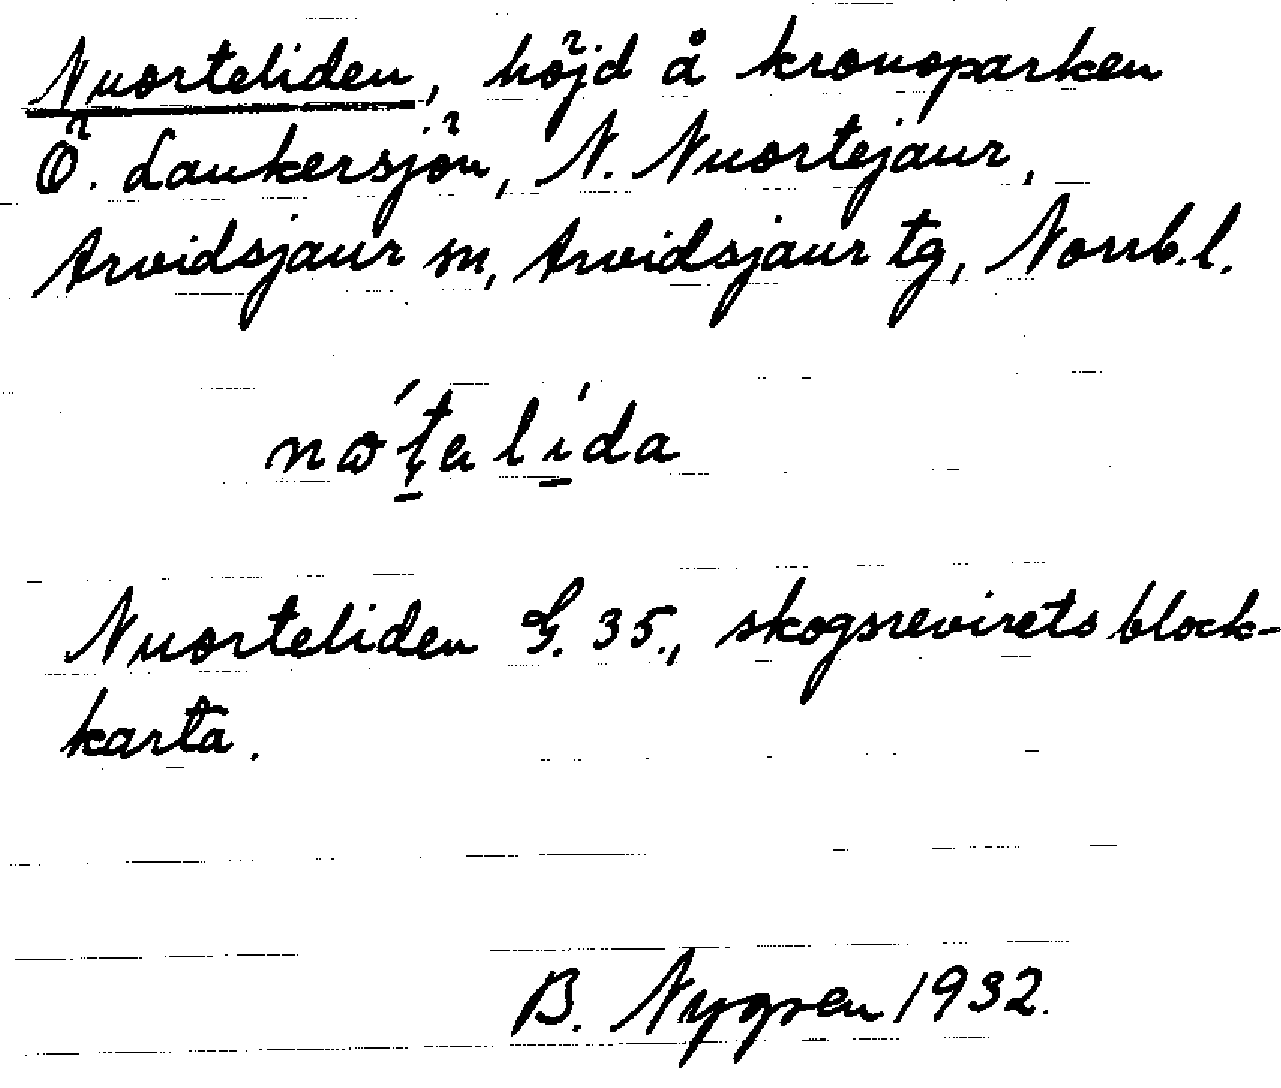 Nuorteliden, höjd å kronoparken
Ö. Laukersjön, N. Nuortejaur,
Arvidsjaur sn, Arvidsjaur tg, Norrb.l.
nώt̠a lí̠da
Nuorteliden G. 35., skogsrevirets block-
karta.
B. Nygren 1932.